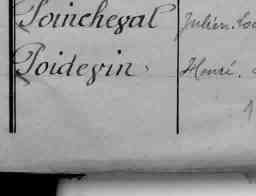 Poincheval Julien.
Poidevin Henri.